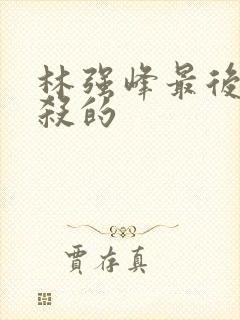 林强峰最後
殺的
賈存真